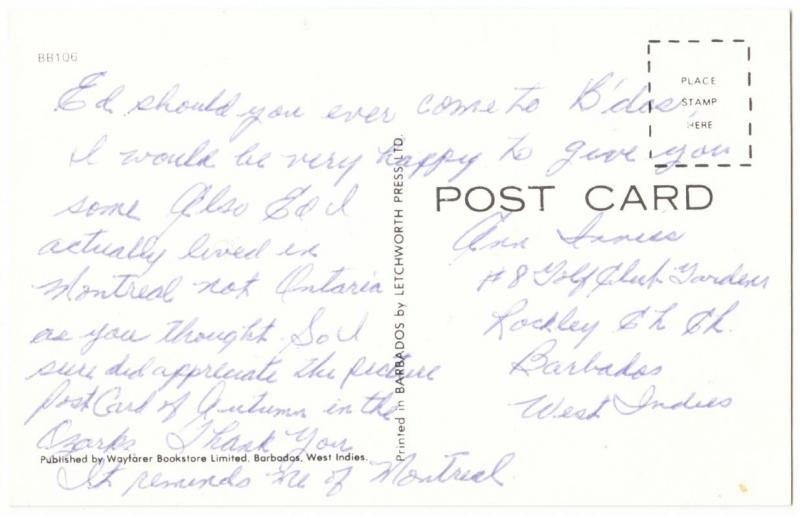 BB106
PLACE
STAMP
HERE
Ed should you ever come to B'dos,
I would be very happy to give you
some Also Ed I
actually lived in
Montreal not Ontario
as you thought. So I
sure did appreciate the picture
Post Card of Autumn in the
Ozarks Thank You
It reminds me of Montreal
POST CARD
Ann Inniss
#8 Golf Club Gardens
Rockley Ch Ch.
Barbados
West Indies
Printed in BARBADOS by LETCHWORTH PRESS LTD.
Published by Wayfarer Bookstore Limited, Barbados, West Indies.